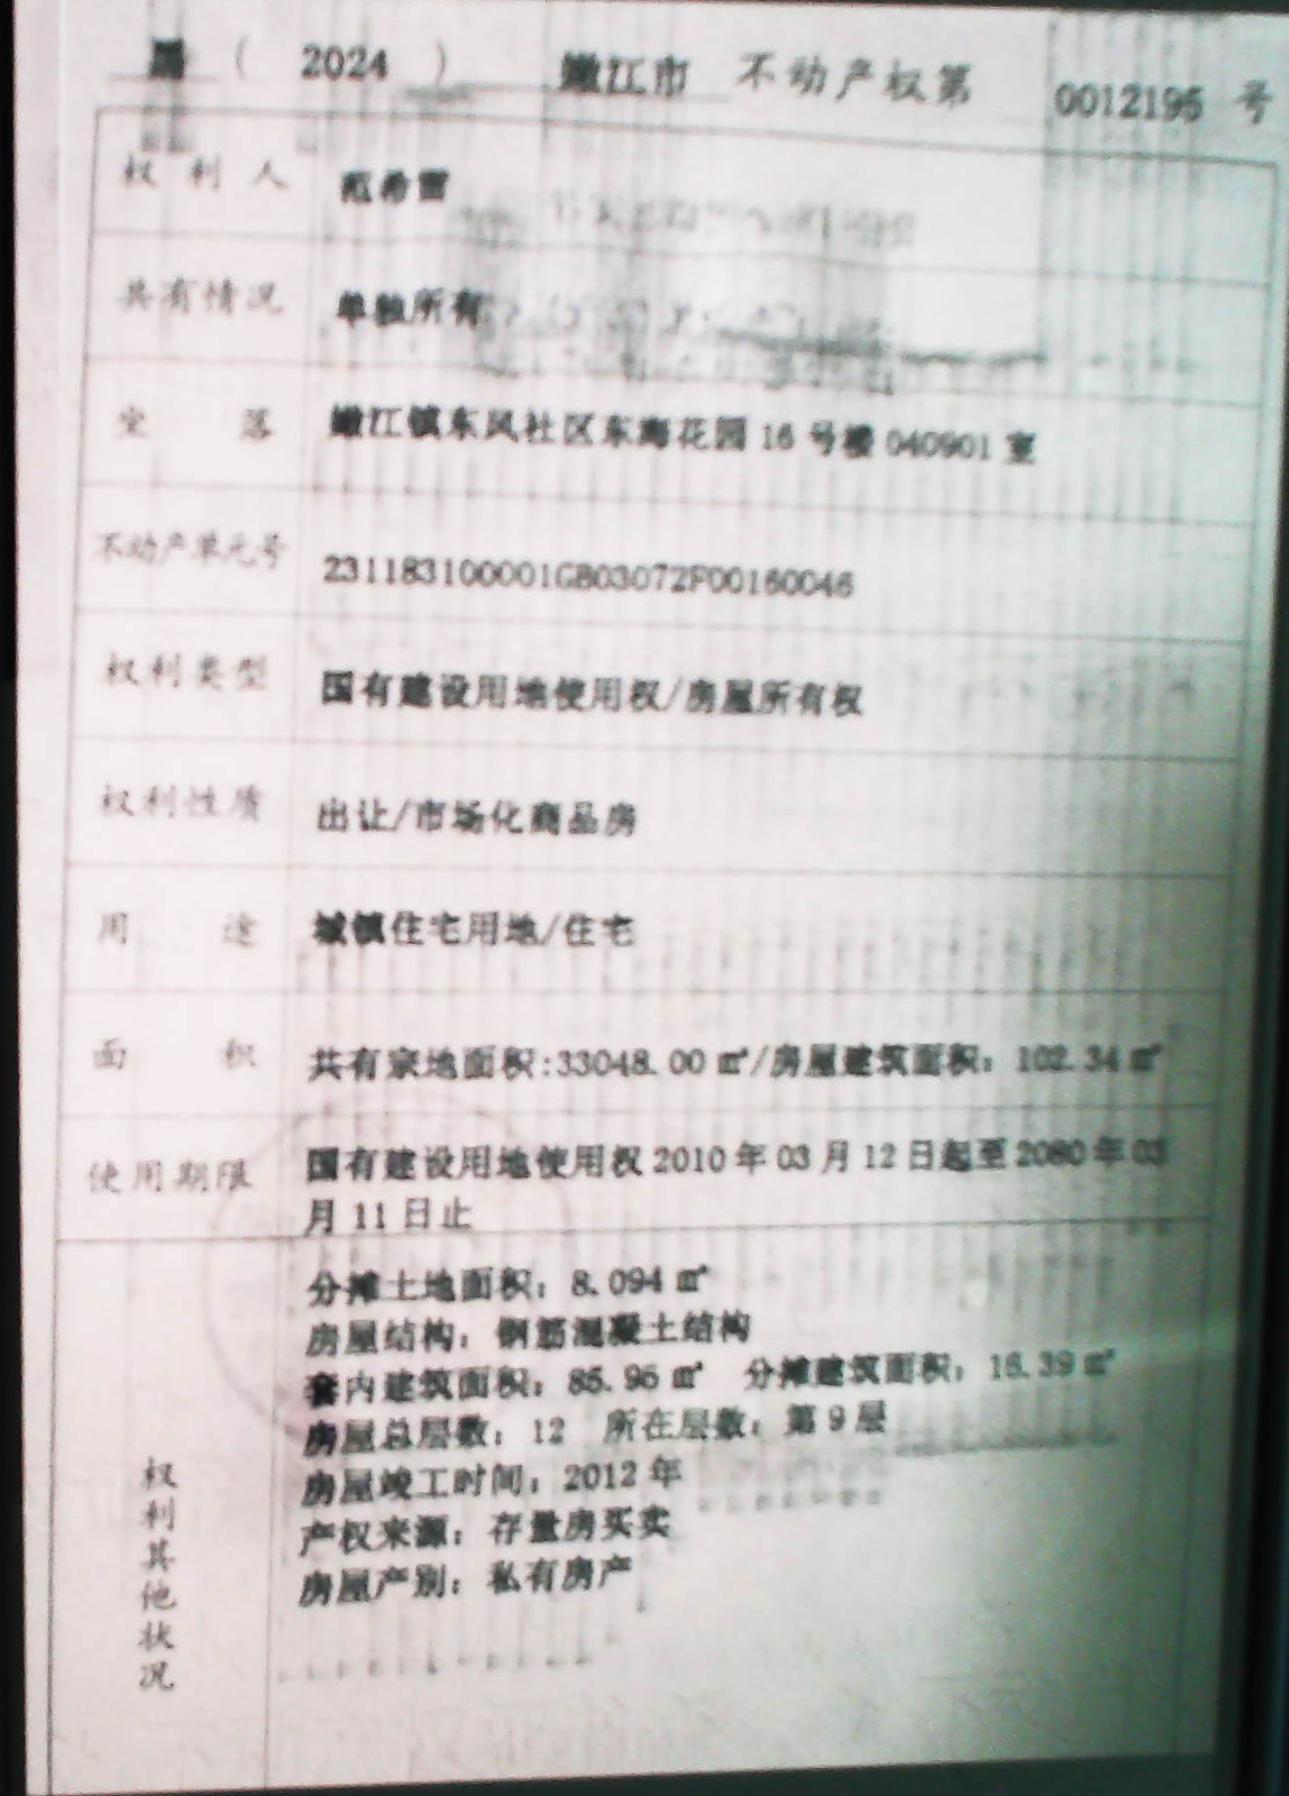 黑（ 2024 ） 嫩江市 不动产权第 0012195 号
权利人 范希雷
共有情况 单独所有
坐落 嫩江镇东风社区东海花园 16 号楼 040901 室
不动产单元号 231183100001GB03072F00160046
权利类型 国有建设用地使用权/房屋所有权
权利性质 出让/市场化商品房
用途 城镇住宅用地/住宅
面积 共有宗地面积:33048.00 ㎡/房屋建筑面积：102.34 ㎡
使用期限 国有建设用地使用权 2010 年 03 月 12 日起至 2080 年 03
月 11 日止
权利其他状况
分摊土地面积：8.094 ㎡
房屋结构：钢筋混凝土结构
套内建筑面积：85.95 ㎡ 分摊建筑面积：16.39 ㎡
房屋总层数：12 所在层数：第 9 层
房屋竣工时间：2012 年
产权来源：存量房买卖
房屋产别：私有房产